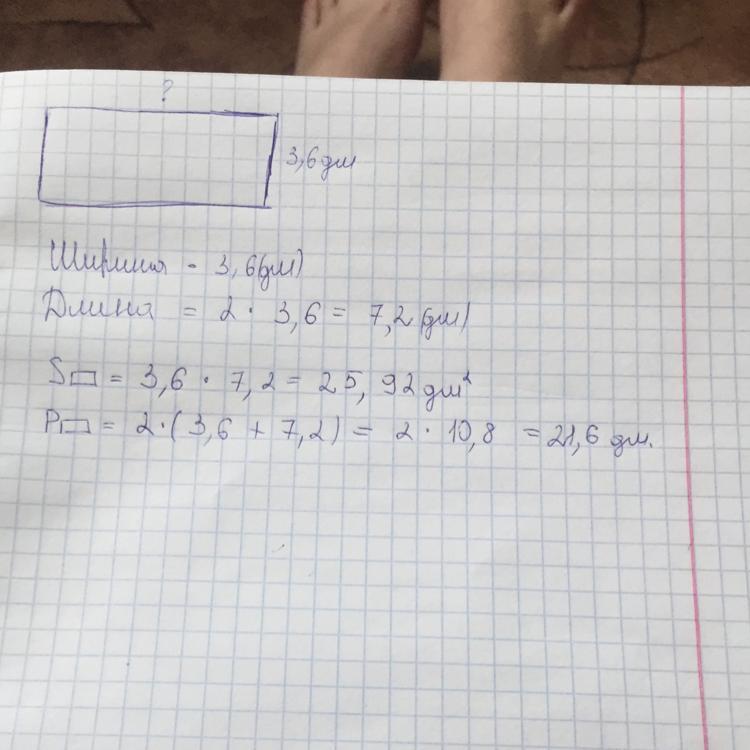 ?
3,6 дм
Ширина - 3,6(дм)
Длина = 2 · 3,6 = 7,2 (дм)
S▭ = 3,6 · 7,2 = 25,92 дм²
P▭ = 2·(3,6 + 7,2) = 2 · 10,8 = 21,6 дм.